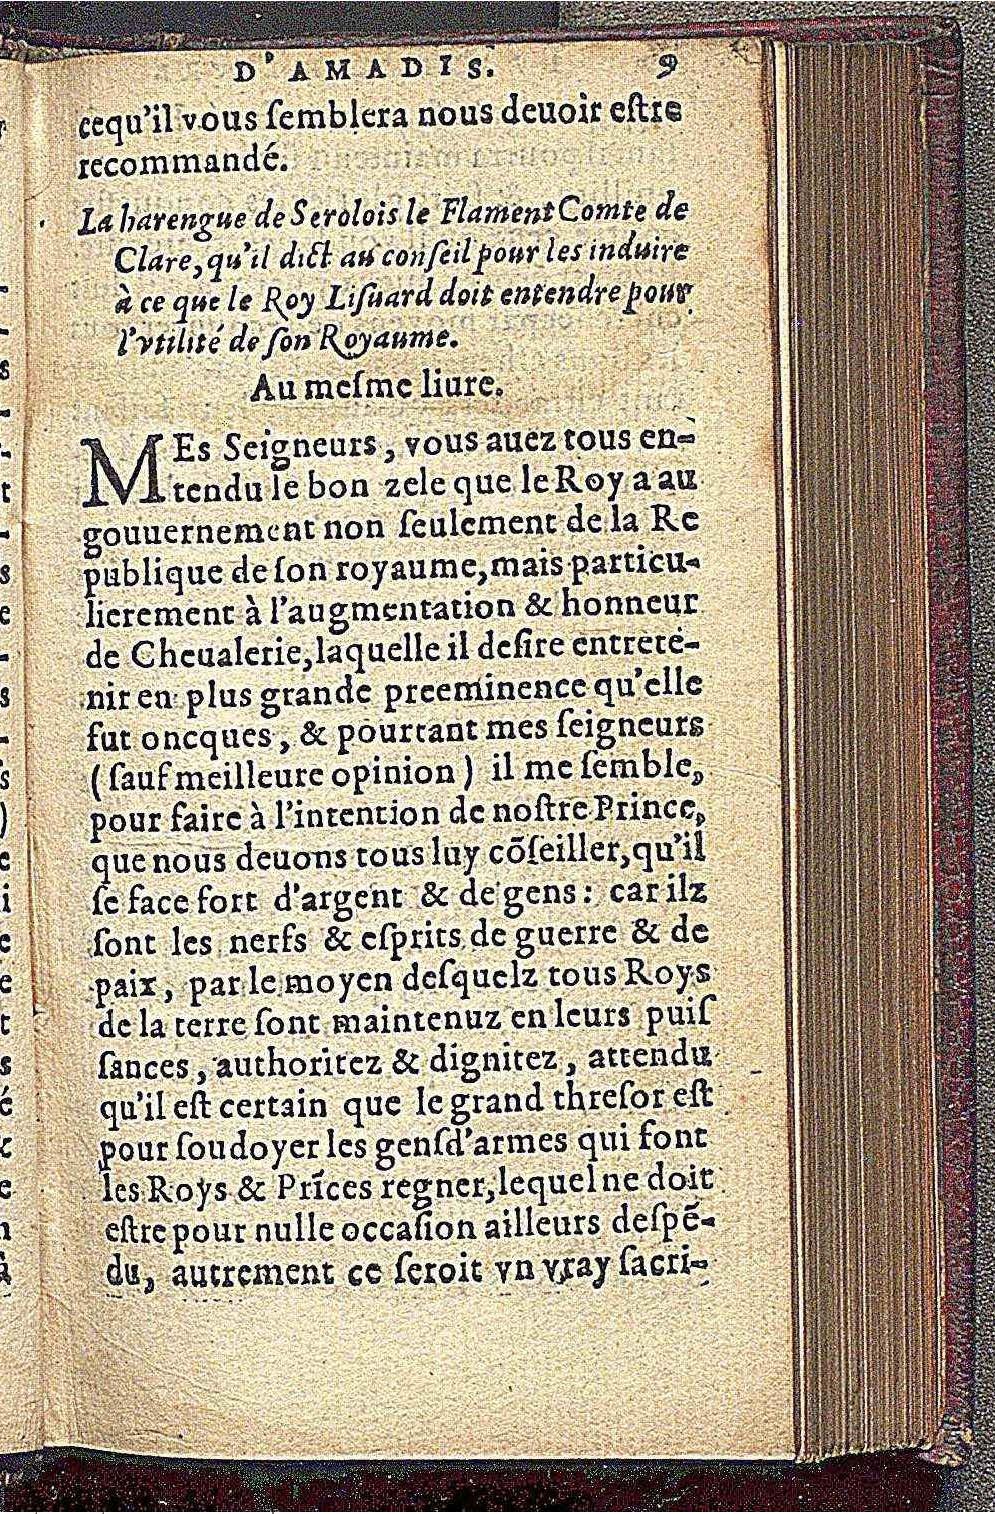 D'AMADIS. 9
cequ'il vous ſemblera nous deuoir eſtre
recommandé.
La harengue de Serolois le Flament Comte de
Clare, qu'il dict au conſeil pour les induire
à ce que le Roy Liſuard doit entendre pour
l'vtilité de ſon Royaume.
Au meſme liure.
MEs Seigneurs, vous auez tous en-
tendu le bon zele que le Roy a au
gouuernement non ſeulement de la Re
publique de ſon royaume, mais particu-
lierement à l'augmentation & honneur
de Cheualerie, laquelle il deſire entrete-
nir en plus grande preeminence qu'elle
fut oncques, & pourtant mes ſeigneurs
(ſauf meilleure opinion) il me ſemble,
pour faire à l'intention de noſtre Prince,
que nous deuons tous luy cõſeiller, qu'il
ſe face fort d'argent & de gens: car ilz
ſont les nerfs & eſprits de guerre & de
paix, par le moyen deſquelz tous Roys
de la terre ſont maintenuz en leurs puiſ
ſances, authoritez & dignitez, attendu
qu'il eſt certain que le grand threſor eſt
pour ſoudoyer les genſd'armes qui font
les Roys & Prĩces regner, lequel ne doit
eſtre pour nulle occaſion ailleurs deſpẽ-
du, autrement ce ſeroit vn vray ſacri-